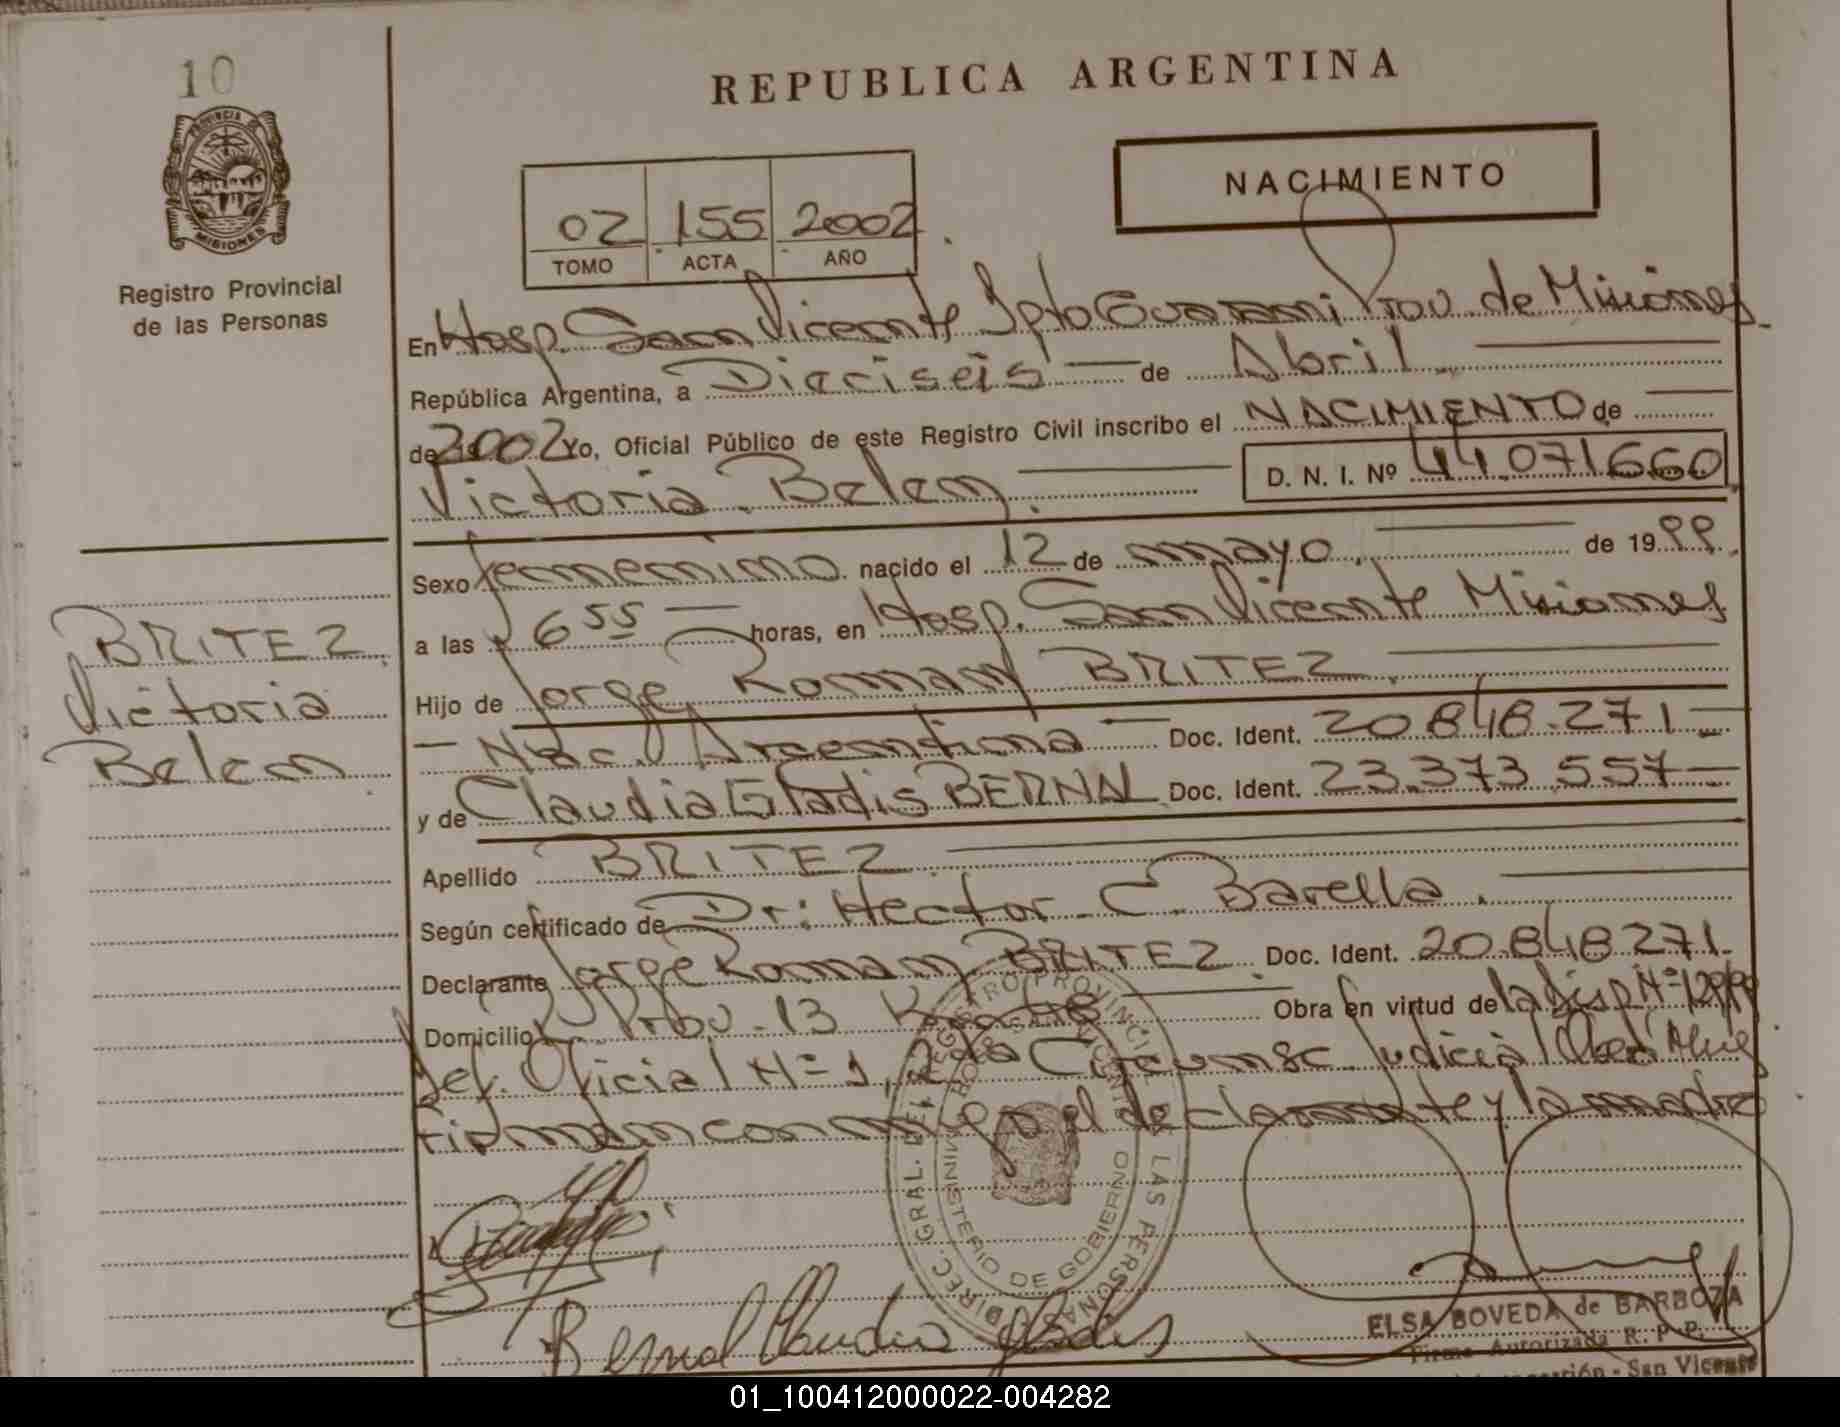 10
REPUBLICA ARGENTINA
PROVINCIA DE
MISIONES
Registro Provincial
de las Personas
NACIMIENTO
02 155 2002
TOMO ACTA AÑO
En Hosp. San Vicente Dpto Guarani Prov. de Misiones
República Argentina, a Dieciseis de Abril
de 2002 Yo, Oficial Público de este Registro Civil inscribo el NACIMIENTO de
Victoria Belen D. N. I. Nº 44.071660
Sexo femenino nacido el 12 de mayo de 1999
a las 6 55 horas, en Hosp. San Vicente Misiones
BRITEZ
Victoria
Belen
Hijo de Jorge Roman BRITEZ
Nac. Argentina Doc. Ident. 20.848.271
y de Claudia Gladis BERNAL Doc. Ident. 23.373.557
Apellido BRITEZ
Según certificado de Dr: Hector C. Barella
Declarante Jorge Roman BRITEZ Doc. Ident. 20.848.271
Domicilio Prov. 13 Obra en virtud de la Disp Nº
Def. Oficial Nº 1, 2da Circunsc. Judicial
Firman conmigo el declarante y la madre
DIREC. GRAL. DEL REGISTRO PROVINCIAL DE LAS PERSONAS
MINISTERIO DE GOBIERNO
Bernal Claudia Gladis
ELSA BOVEDA de BARBOZA
Firma Autorizada R. P. P.
San Vicente
01_100412000022-004282